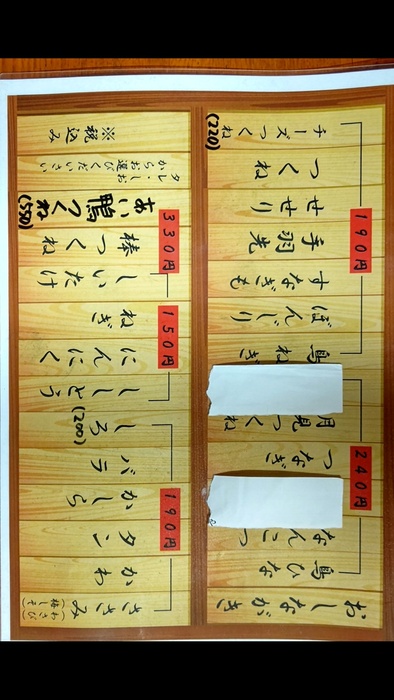 おしながき
240円
鳥ひな
なんこつ
つなぎ
月見つくね
190円
鳥ねぎ
ぼんじり
すなぎも
手羽先
せせり
つくね
チーズつくね(220)
190円
ささみ(わさび)(梅しそ)
かわ
タン
かしら
バラ
しろ(200)
150円
ししとう
にんにく
ねぎ
330円
しいたけ
棒つくね
あい鴨つくね(550)
タレ・しお
からお選びください
※税込み